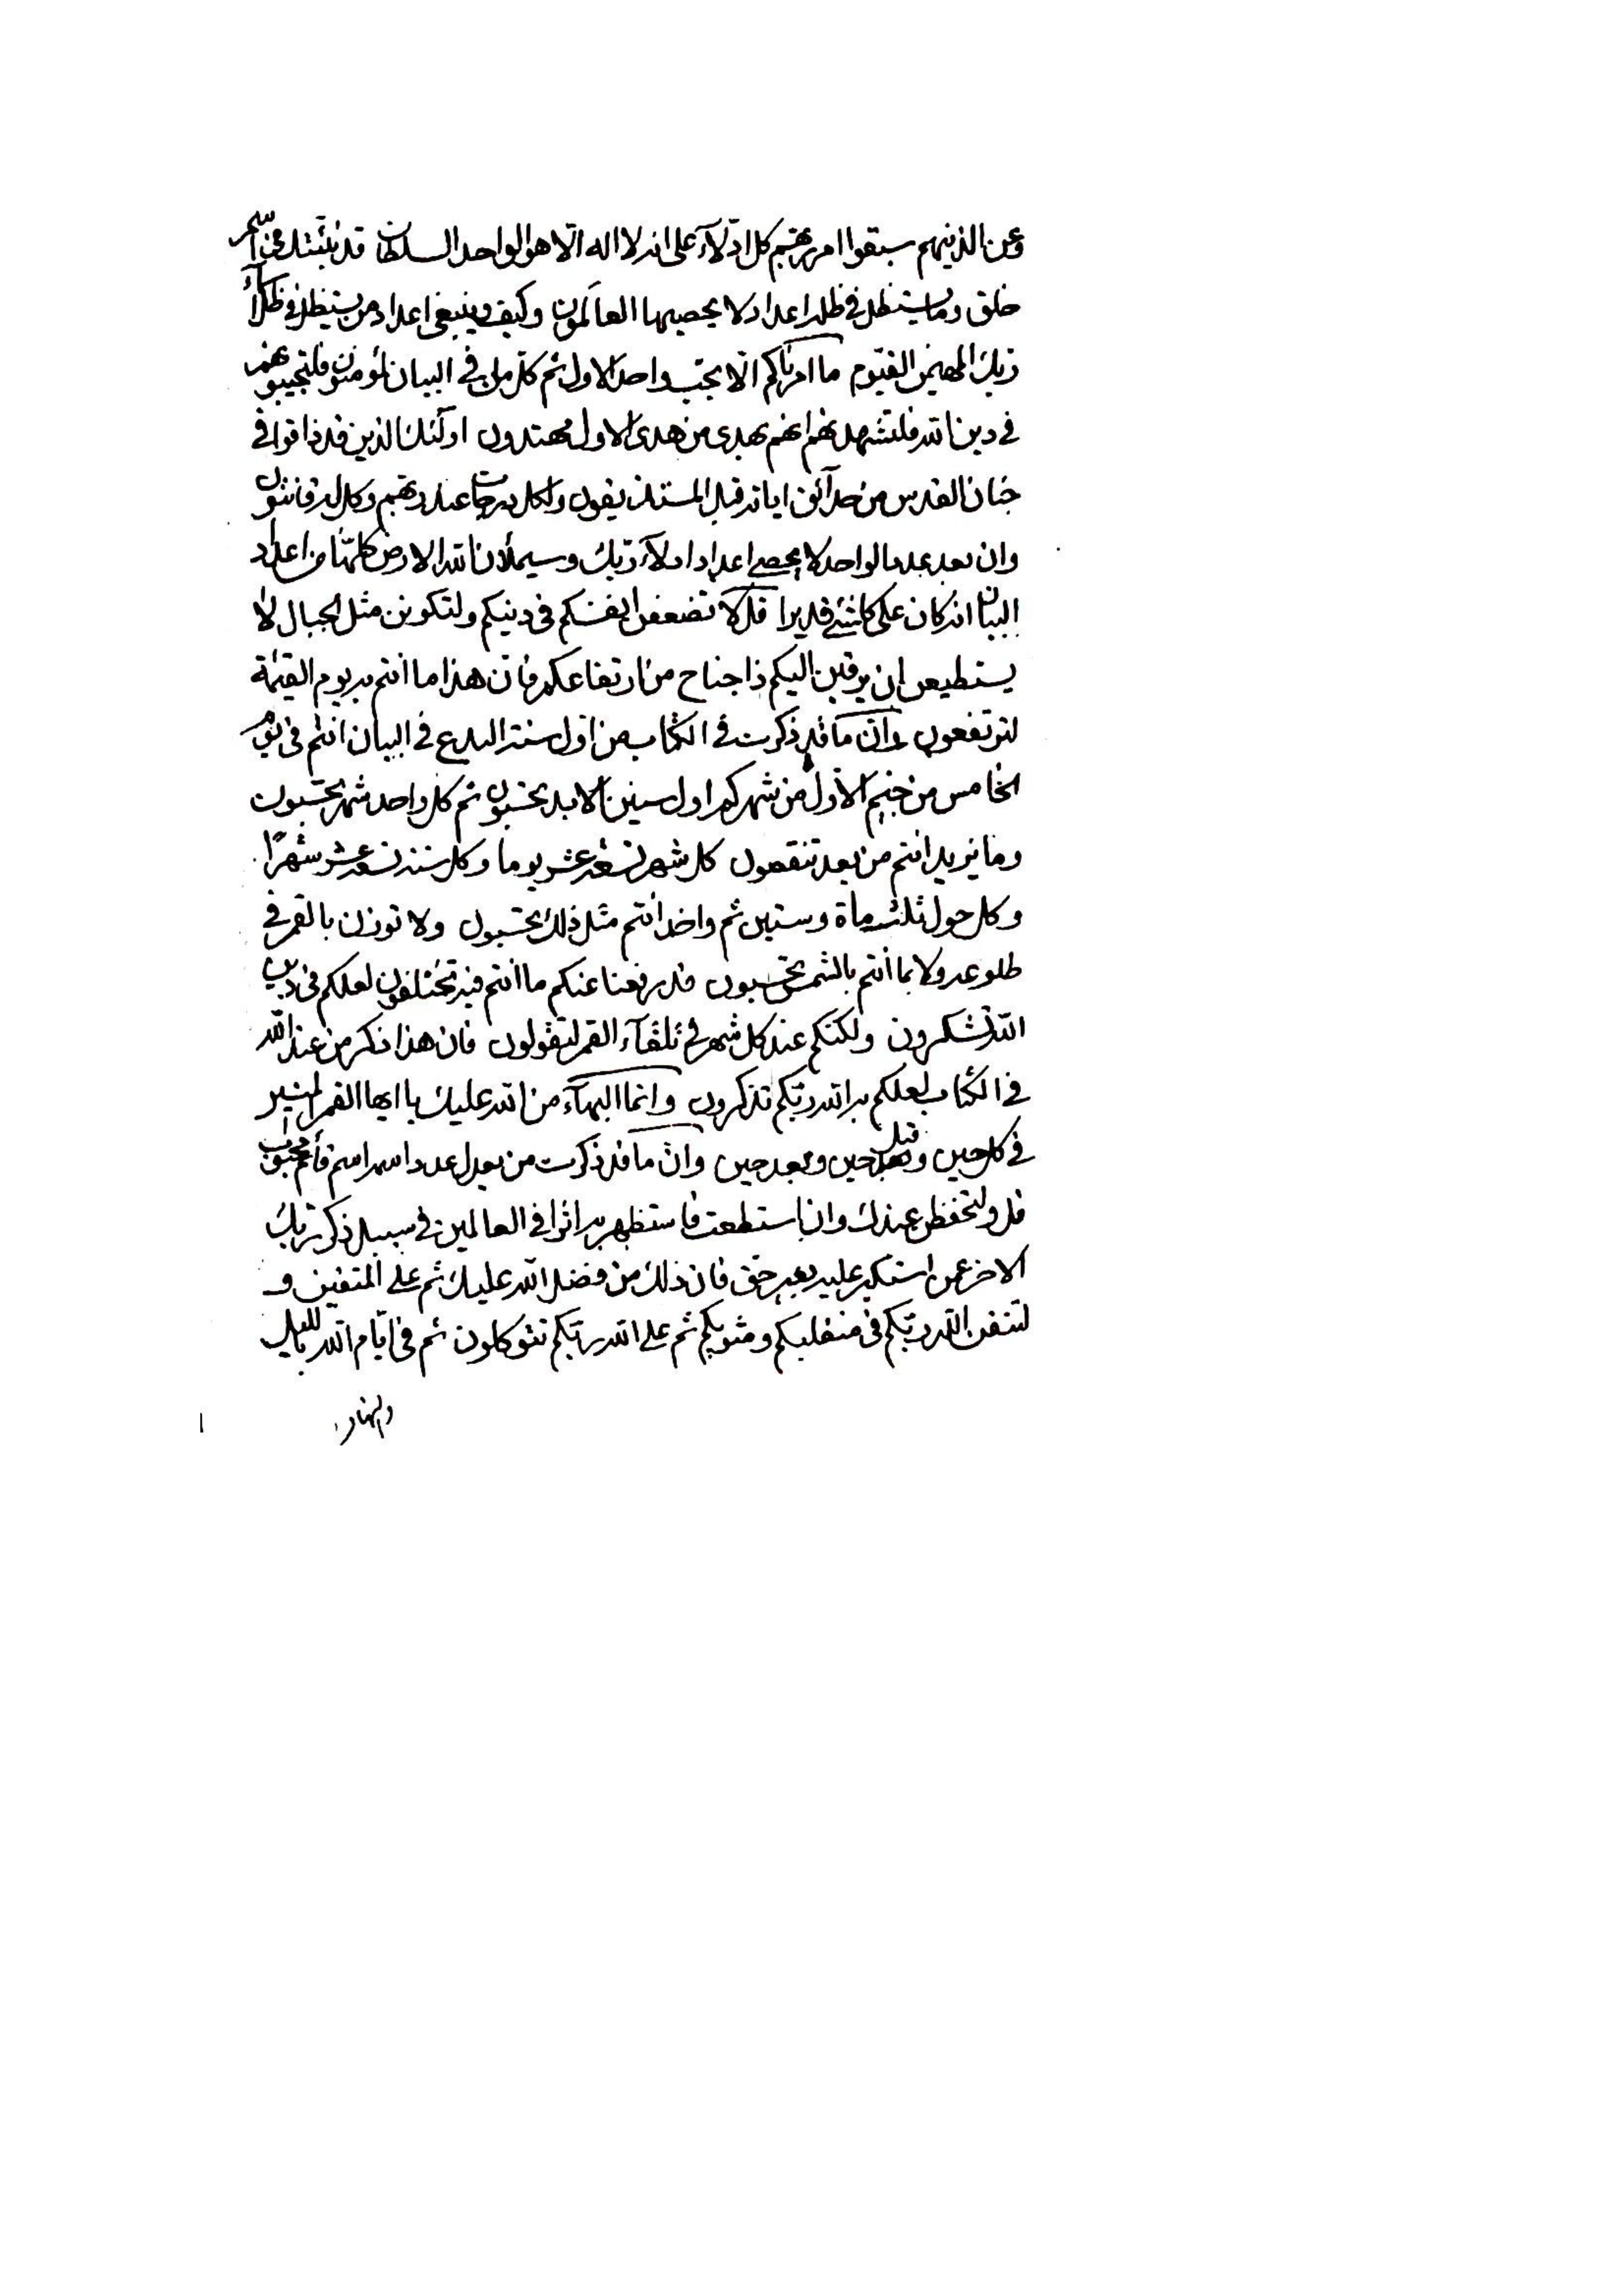 وعن الذينهم سبقوا امر ربهم كل ادلآء على انه لا اله الا هو الواحد السلطان قد نبئتك عن اسم
خلق وما يستظل في ظله اعداد لا يحصيها العالمون وكيف وينبغي اعداد من يستظل في ظل اسمآء
ربك المهيمن القيوم ما امرناكم الا بحب واحد الاول ثم كل من في البيان لمؤمنون فلتحبيبونهم
في دين الله فلتشهد بهم انهم بهدى من هدى الاول مهتدون اولئك الذين قد ذاقوا في
جنان القدس من حدآئق ايات الله قبل المستذيقون ولكل درجات عند ربهم وكل له قانتون
وان بعد عدد الواحد لا يحصى اعداد ادلآء ربك وسيملأن الله الارض كلها من اعداد
البيان انه كان على كلشئ قديرا قل لا تضعفن انفسكم في دينكم ولتكونن مثل الجبال لا
يستطيعن ان يرقين اليكم ذا جناح من ارتفاعكم فان هذا ما انتم به يوم القيمة
لترتفعون وان ما قد ذكرت في الكتاب من اول سنة البدع في البيان انتم في يوم
الخامس من جيم الاول من شهركم اول سنين الابد تحتسبون ثم كل واحد شهر تحتسبون
وما نزيد انتم من بعد تنقصون كل شهر تسعة عشر يوما وكل سنة تسعة عشر شهرًا
وكل حول ثلث ماة وستين ثم واحد انتم مثل ذلك تحتسبون ولا توزن بالقمر في
طلوعه ولا بما انتم بالشمس تحتسبون قد رفعنا عنكم ما انتم فيه تختلفون لعلكم في دين
الله تشكرون ولكنكم عند كل شهر في تلقآء القمر لتقولون فان هذا ذكر من عند الله
في الكتاب لعلكم به الله ربكم تذكرون وانما البهآء من الله عليك يا ايها القمر المنير
في كل حين وقبل حين وبعد حين وان ما قد ذكرت من بعد اعدد اسمه اسم
قل ولتحفظن عندك وان استطعت فاستظهر به اثرا في العالمين في سبيل ذكر ربك
الاخر عمن استكبر عليه بغير حق فان ذلك من فضل الله عليك ثم على المتقين و
لتتقن الله ربكم في منقلبكم ومثويكم ثم على الله ربكم تتوكلون ثم في ايام الله بالليل
والنهار